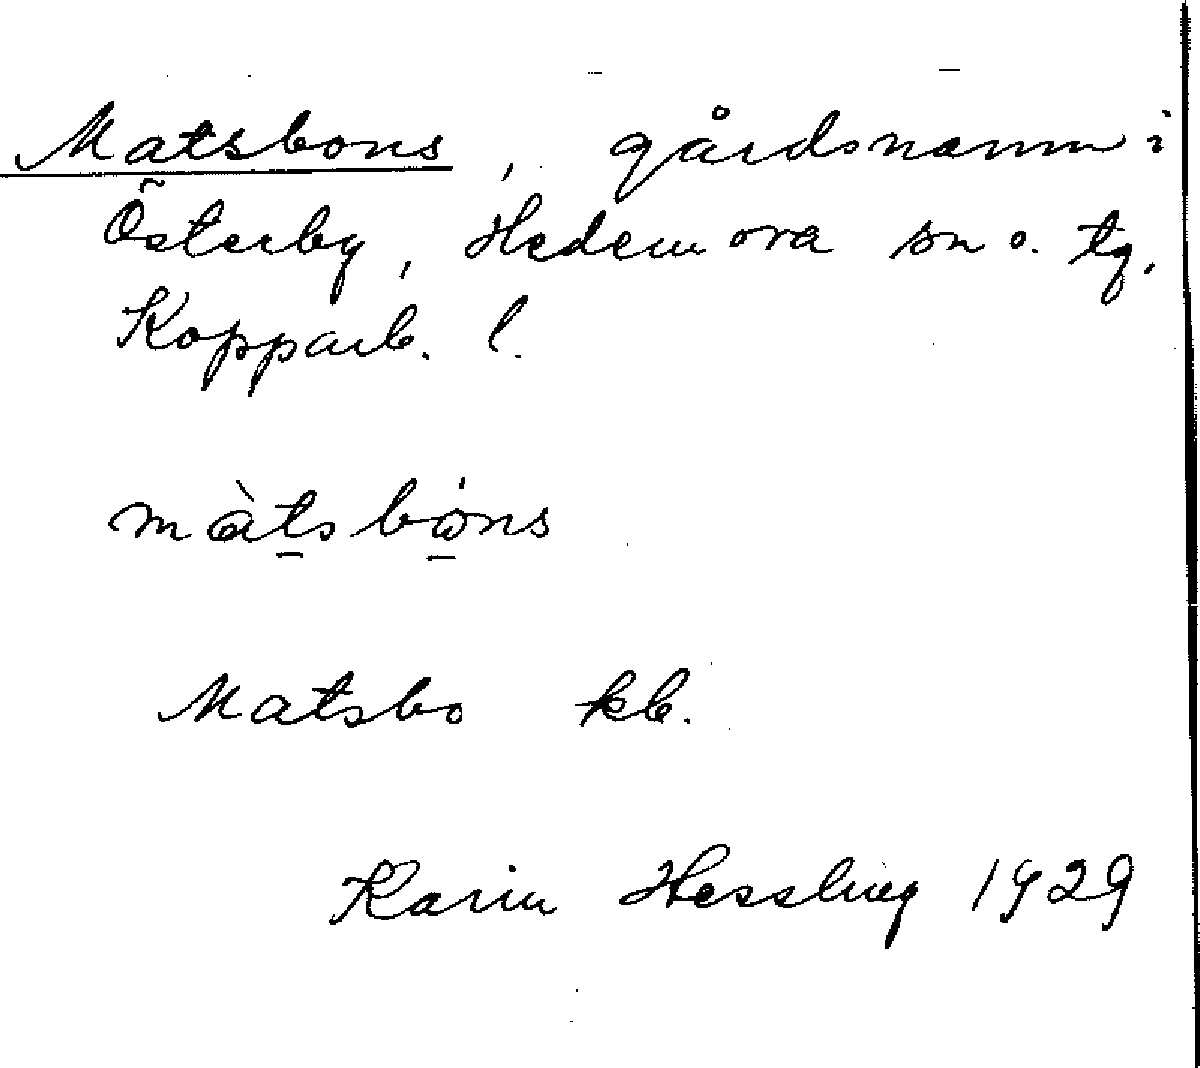 Matsbons, gårdsnamn i
Österby, Hedemora sn o. tg,
Kopparb. l.
màts̠bo̠ns
Matsbo kb.
Karin Hessling 1929